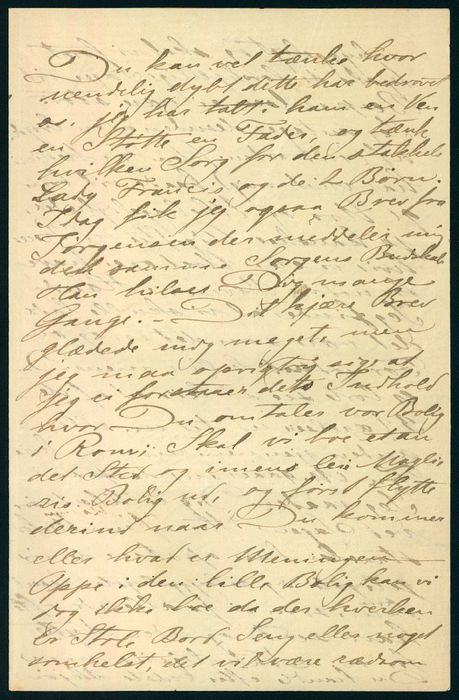 Du kan vel tænke hvor
uendelig dybt dette har bedrøvet
os. jeg har tabt i ham en Ven
en Støtte en Fader, og tænk
hvilken Sorg for den stakkels
Lady Francis og de 2 Børn.
Idag fik jeg ogsaa Brev fra
Jørgensen der meddeler mig
det samme Sorgens Budskab
Han hilser Dig mange
Gange. – Dit kjære Brev
glædede mig meget, men
jeg maa oprigtig sige at
jeg ei forstaaer dets Indhold
hvor Du omtaler vor Bolig
i Rom; Skal vi boe et an
det Sted og imens leie
Bolig ud, og først flytte
derind naar Du kommer
eller hvad er Meningen
Oppe i den lille Bolig kan vi
dog ikke boe da der hverken
er Stole Bord, Seng eller noget
somhelst, det vil være rædsom